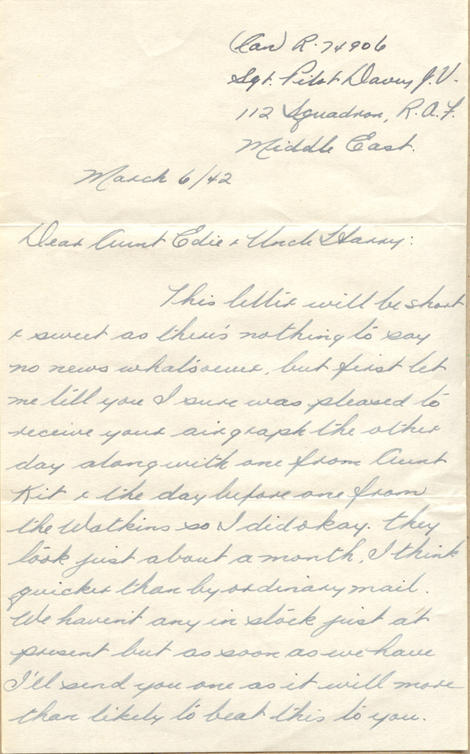 Can R. 74906
Sgt. Pilot Davey J.V.
112 Squadron, R.A.F.
Middle East.
March 6/42
Dear Aunt Edie & Uncle Harry:
This letter will be short
& sweet as there's nothing to say
no news whatsoever, but first let
me tell you I sure was pleased to
receive your airgraph the other
day along with one from Aunt
Kit & the day before one from
the Watkins so I did okay. They
took just about a month, I think
quicker than by ordinary mail.
We havent any in stock just at
present but as soon as we have
I'll send you one as it will more
than likely to beat this to you.